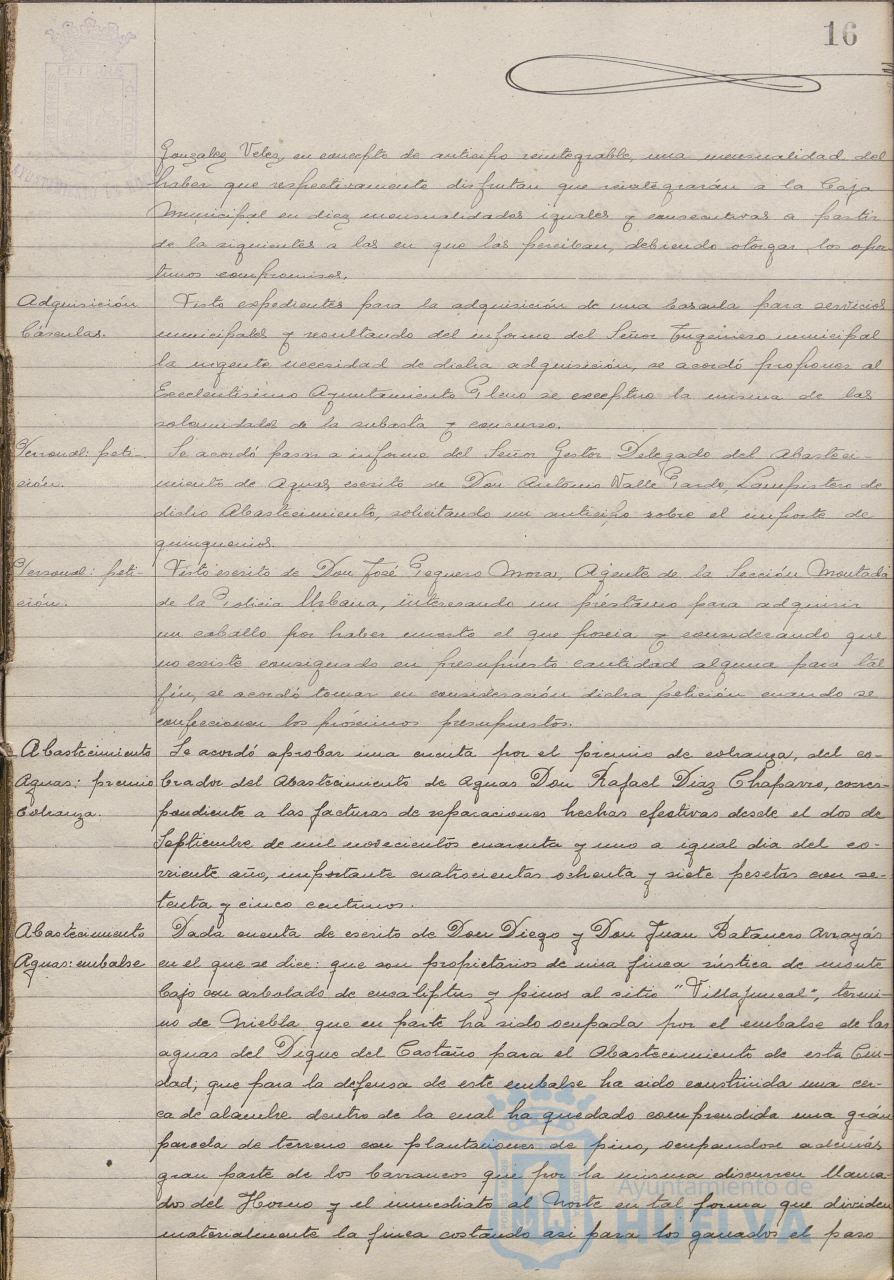 16
Gonzalez Velez, en concepto de anticipo reintegrable, una mensualidad del
haber que respectivamente disfrutan que reintegrarán a la Caja
Municipal en diez mensualidades iguales y consecutivas a partir
de la siguientes a las en que las perciban, debiendo otorgar los opor-
tunos compromisos.
Adquisición
básculas.
Visto expedientes para la adquisición de una bascula para servicios
municipales y resultando del informe del Señor Ingeniero municipal
la urgente necesidad de dicha adquisición, se acordó proponer al
Excelentisimo Ayuntamiento Pleno se exceptue la misma de las
solemnidades de la subasta y concurso.
Personal: peti-
ción.
Se acordó pasar a informe del Señor Gestor Delegado del Abasteci-
miento de Aguas, escrito de Don Antonio Valle Pardo, Lampistero de
dicho Abastecimiento, solicitando un anticipo sobre el importe de
quinquenios.
Personal: peti-
ción.
Visto escrito de Don José Peguero Mora, Agente de la Sección Montada
de la Policia Urbana, interesando un préstamo para adquirir
un caballo por haber muerto el que poseia y considerando que
no existe consignado en presupuesto cantidad alguna para tal
fin, se acordó tomar en consideración dicha petición cuando se
confeccionen los próximos presupuestos.
Abastecimiento
Aguas: premio
cobranza.
Se acordó aprobar una cuenta por el premio de cobranza, del co-
brador del Abastecimiento de Aguas Don Rafael Diaz Chaparro, corres-
pondiente a las facturas de reparaciones hechas efectivas desde el dos de
Septiembre de mil novecientos cuarenta y uno a igual dia del co-
rriente año, importante cuatrocientas ochenta y siete pesetas con se-
tenta y cinco centimos.
Abastecimiento
Aguas: embalse
Dada cuenta de escrito de Don Diego y Don Juan Batanero Arrayás
en el que se dice: que son propietarios de una finca rústica de monte
bajo con arbolado de eucaliptus y pinos al sitio "Villajuncal", termi-
no de Niebla que en parte ha sido ocupada por el embalse de las
aguas del Dique del Castaño para el Abastecimiento de esta Ciu-
dad; que para la defensa de este embalse ha sido construida una cer-
ca de alambre dentro de la cual ha quedado comprendida una grán
parcela de terreno con plantaciones de pino, ocupandose además
gran parte de los barrancos que por la misma discurren llama-
dos del Horno y el inmediato al Norte en tal forma que dividen
materialmente la finca costando asi para los ganados el paso
Ayuntamiento de
HUELVA